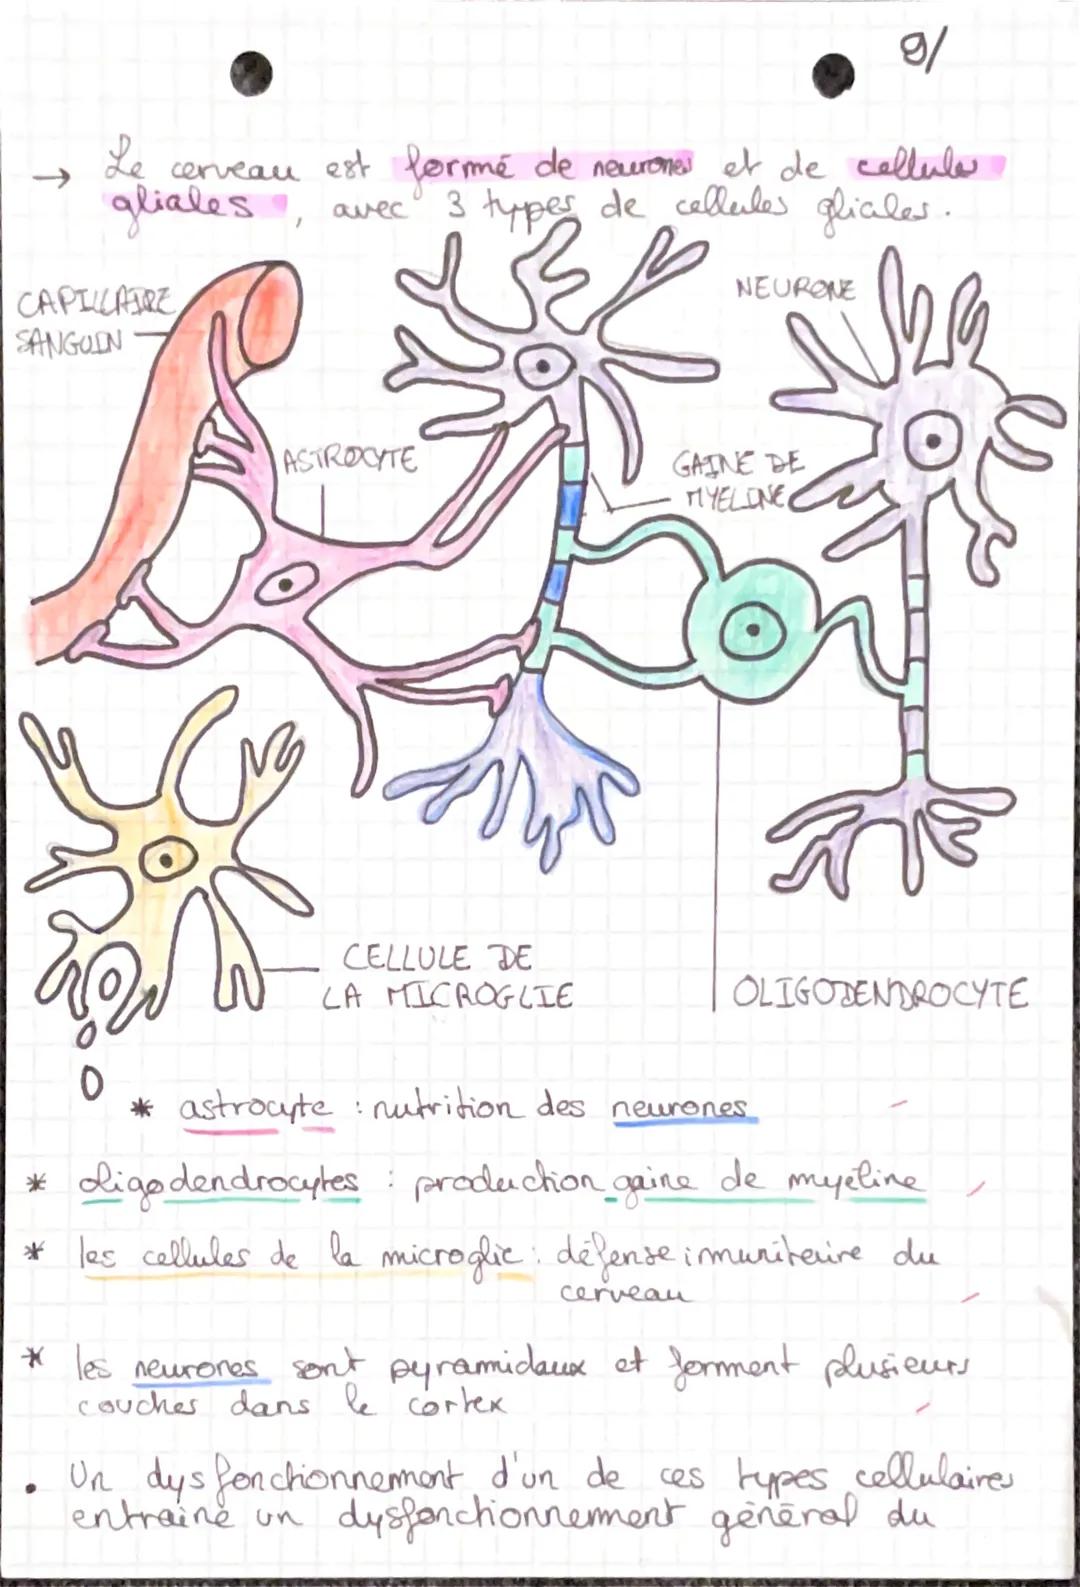 9/
→ Le cerveau est formé de neurones et de cellules
gliales, avec 3 types de cellules gliales.
CAPILLAIRE
SANGUIN
NEURONE
ASTROCYTE
GAINE DE
MYELINE
CELLULE DE
LA MICROGLIE
OLIGODENDROCYTE
* astrocyte : nutrition des neurones
* oligodendrocytes : production gaine de myéline
* les cellules de la microglie : défense immunitaire du
cerveau
* les neurones sont pyramidaux et forment plusieurs
couches dans le cortex
• Un dysfonctionnement d'un de ces types cellulaires
entraine un dysfonctionnement général du